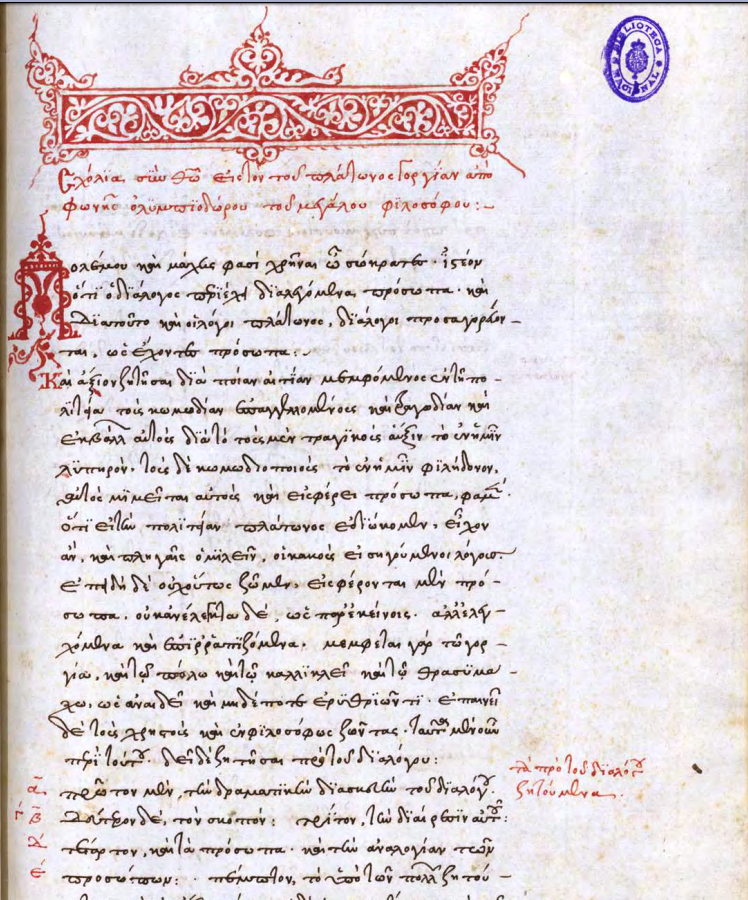 Σχόλια σὺν θεῷ εἰς τὸν τοῦ πλάτωνος γοργίαν ἀπὸ
φωνῆς ὀλυμπιοδώρου τοῦ μεγάλου φιλοσόφου :-
Πολέμου καὶ μάχης φασὶ χρῆναι ὦ σώκρατες · ἰστέον
ὅτι ὁ διάλογος περιέχει διαλεγόμενα πρόσωπα · καὶ
διατοῦτο καὶ οἱ λόγοι πλάτωνος, διάλογοι προσαγορεύον-
ται, ὡς ἔχοντες πρόσωπα :
Καὶ ἄξιον ζητῆσαι διὰ ποίαν αἰτίαν μεμφόμενος ἐν τῇ πο-
λιτείᾳ τοῖς κωμῳδίαν ἐπαγγελλομένοις καὶ τραγῳδίαν καὶ
ἐκβάλλει αὐτοὺς διὰ τὸ τοὺς μὲν τραγικοὺς αὔξειν τὸ ἐν ἡμῖν
λυπηρὸν · τοὺς δὲ κωμωδιοποιοὺς τὸ ἐν ἡμῖν φιλήδονον,
αὐτὸς μιμεῖται αὐτοὺς καὶ εἰσφέρει πρόσωπα, φαμὲν ·
ὅτι εἰ τὴν πολιτείαν πλάτωνος εἱπόμεν, εἶχον
ἂν, καὶ πληγαῖς ὁμιλεῖν, οἱ κακοὺς εἰσηγούμενοι λόγους.
ἐπειδὴ δὲ οὐχ οὕτως ζῶμεν, εἰσφέρονται μὲν πρό-
σωπα · οὐκ ἀνέλεγκτα δὲ, ὡς παρ' ἐκείνοις · ἀλλ' ἐλεγ-
χόμενα καὶ ἐπιρραπιζόμενα · μέμφεται γὰρ τῷ γορ-
γίᾳ, καὶ τῷ πώλῳ καὶ τῷ καλλικλεῖ καὶ τῷ θρασυμά-
χῳ, ὡς ἀναιδεῖ καὶ μηδέποτε ἐρυθριῶντι · ἐπαινεῖ
δὲ τοὺς χρηστοὺς καὶ ἐμφιλοσόφως ζῶντας · ταῦτα μὲν οὖν
περὶ τούτου · δεῖ δὲ ζητῆσαι πρὸ τοῦ διαλόγου :
τὰ πρὸ τοῦ διαλόγου
ζητούμενα .
α πρῶτον μὲν, τὴν δραματικὴν διασκευὴν τοῦ διαλόγου.
β δεύτερον δὲ, τὸν σκοπόν : τρίτον, τὴν διαίρεσιν αὐτοῦ :
δ τέταρτον, καὶ τὰ πρόσωπα · καὶ τὴν ἀναλογίαν τῶν
ε προσώπων : πέμπτον, τὸ ὑπὸ τῶν πολλῶν ζητού-
BIBLIOTECA NACIONAL